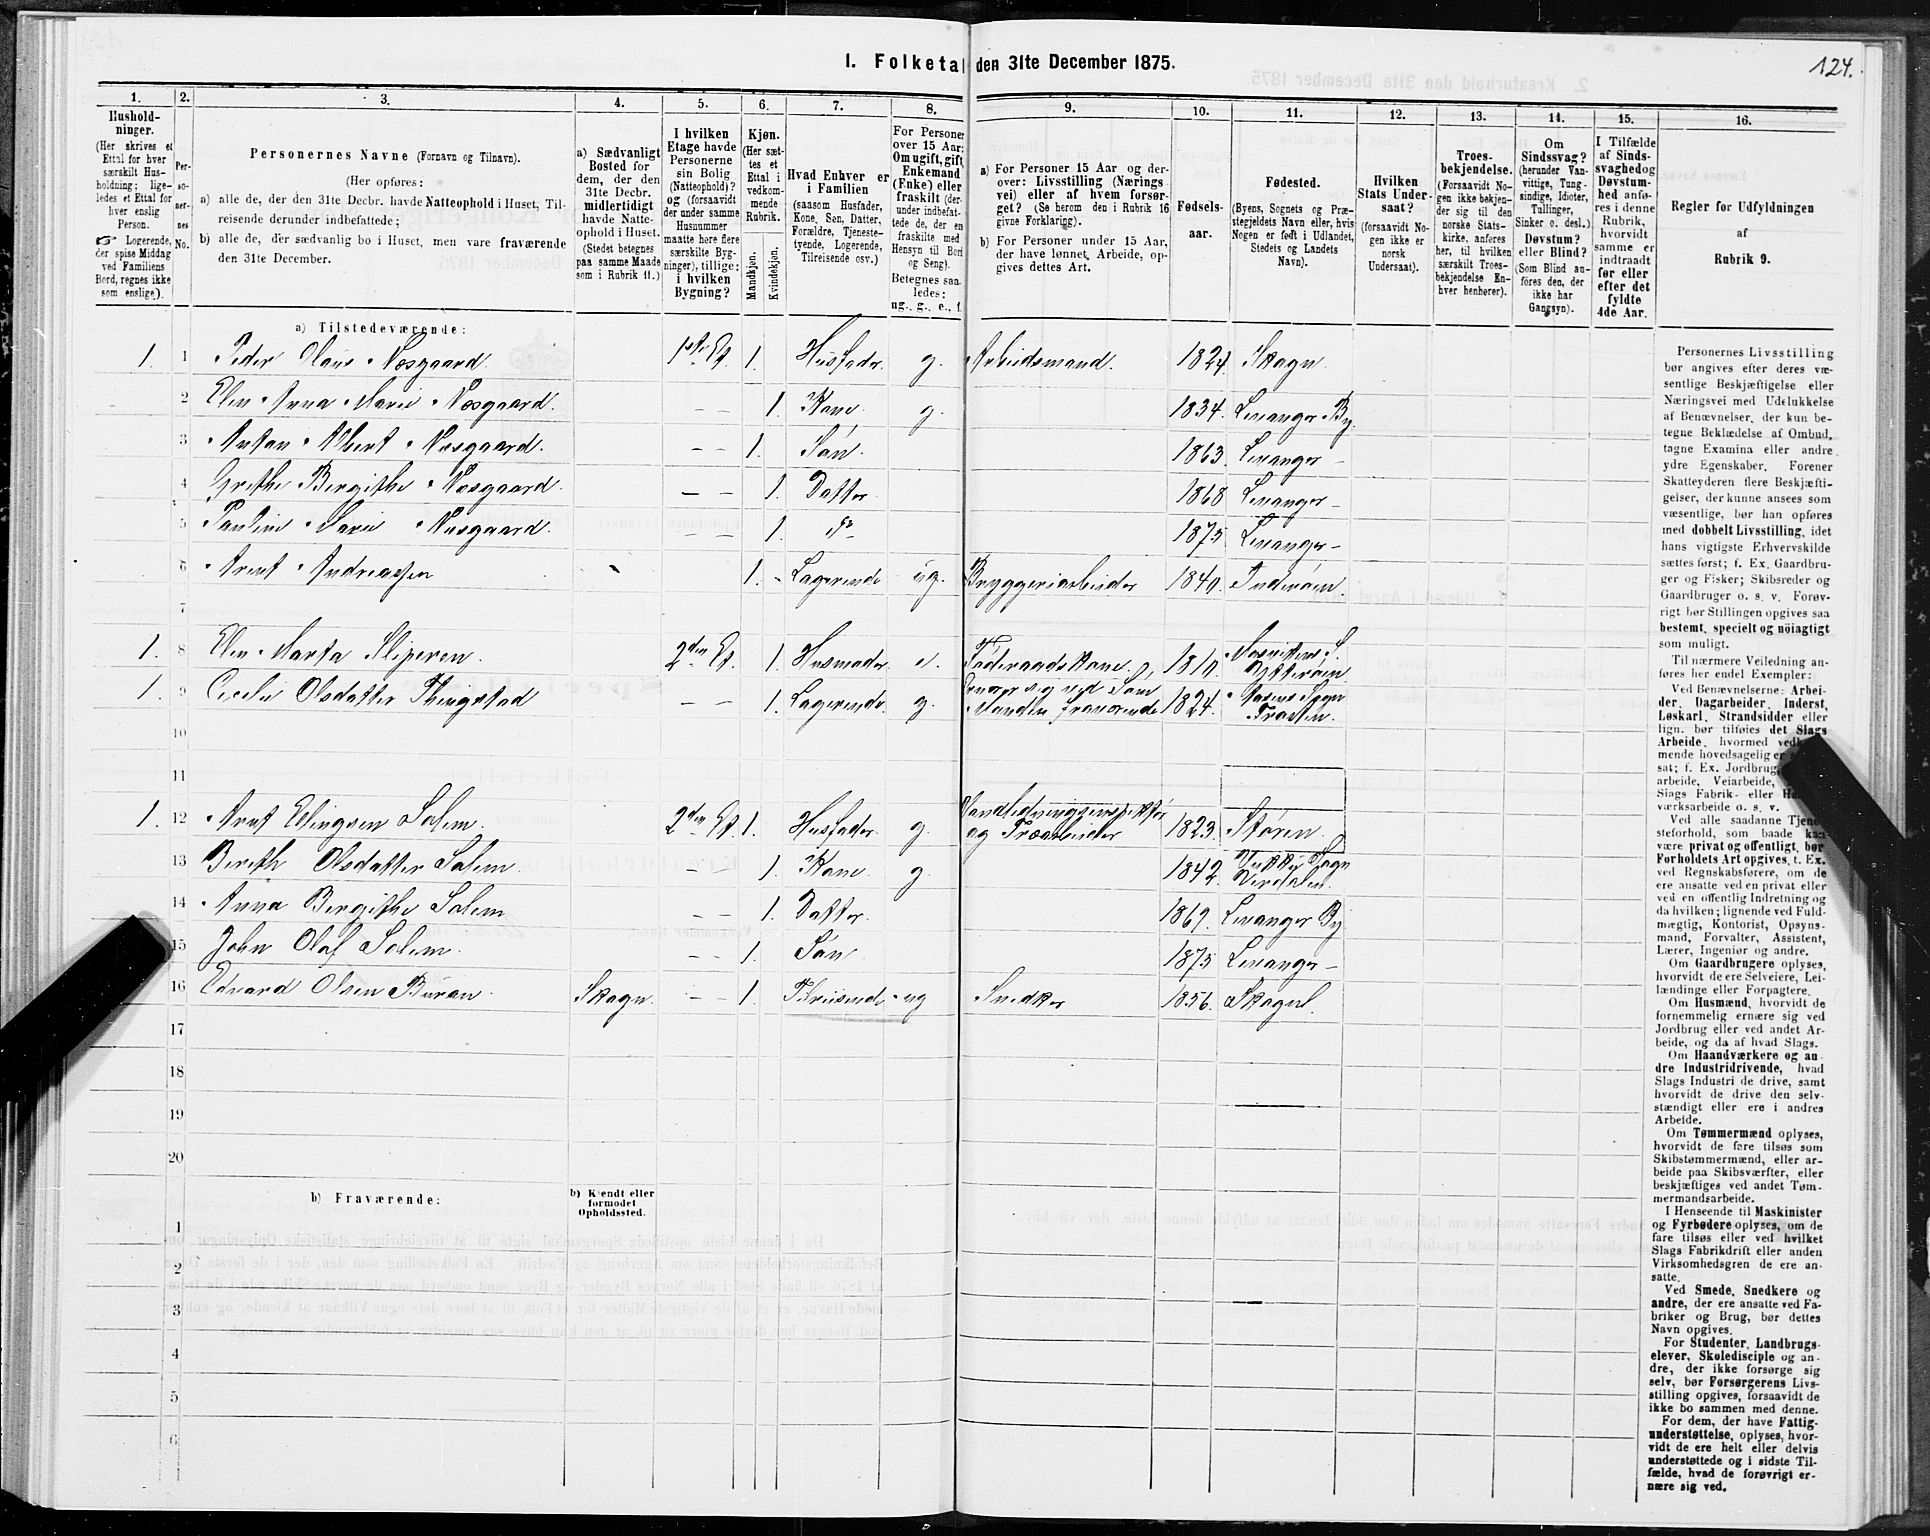 I. Folketal den 31te December 1875.
124.
1.
2.
3.
4.
5.
6.
7.
8.
9.
10.
11.
12.
13.
14.
15.
16.
Hushold-
ninger.
(Her skrives et
Ettal for hver
særskilt Hus-
holdning; lige-
ledes et Ettal for
hver enslig
Person.
☞ Logerende,
der spise Middag
ved Familiens
Bord, regnes ikke
som enslige).
Per-
so-
ner-
nes
No.
Personernes Navne (Fornavn og Tilnavn).
(Her opføres:
a) alle de, der den 31te Decbr. havde Natteophold i Huset, Til-
reisende derunder indbefattede;
b) alle de, der sædvanlig bo i Huset, men vare fraværende
den 31te December.
a) Sædvanligt
Bosted for
dem, der den
31te Decbr.
midlertidigt
havde Natte-
ophold i Huset.
(Stedet betegnes
paa samme Maade
som i Rubrik 11.)
I hvilken
Etage havde
Personerne
sin Bolig
(Natteophold)?
og (forsaavidt
der under samme
Husnummer
maatte høre flere
særskilte Byg-
ninger), tillige:
i hvilken
Bygning?
Kjøn.
(Her sæt-
tes et
Ettal i
vedkom-
mende
Rubrik.
Mandkjøn.
Kvindekjøn.
Hvad Enhver er
i Familien
(saasom Husfader,
Kone, Søn, Datter,
Forældre, Tjeneste-
tyende, Logerende,
Tilreisende osv.)
For Personer
over 15 Aar:
Om ugift, gift,
Enkemand
(Enke) eller
fraskilt (der-
under indbefat-
tede de, der en
fraskilte med
Hensyn til Bord
og Seng).
Betegnes saa-
ledes:
ug., g., e., f.
a) For Personer 15 Aar og der-
over: Livsstilling (Nærings-
vei) eller af hvem forsør-
get? (Se herom den i Rubrik 16
givne Forklaring).
b) For Personer under 15 Aar,
der have lønnet Arbeide, op-
gives dettes Art.
Fødsels-
aar.
Fødested.
(Byens, Sognets og Præ-
stegjeldets Navn eller, hvis
Nogen er født i Udlandet,
Stedets og Landets
Navn).
Hvilken
Stats Under-
saat?
(forsaavidt No-
gen ikke er
norsk
Undersaat).
Troes-
bekjendelse.
(Forsaavidt No-
gen ikke bekjen-
der sig til den
norske Stats-
kirke, anføres
her, til hvilken
særskilt Troes-
bekjendelse En-
hver henhører).
Om
Sindssvag?
(herunder Van-
vittige, Tung-
sindige, Idioter,
Tullinger,
Sinker o. desl.)
Døvstum?
eller Blind?
(Som Blind an-
føres den, der
ikke har
Gangsyn).
I Tilfælde
af Sinds-
svaghed og
Døvstum-
hed anfø-
res i denne
Rubrik,
hvorvidt
samme er
indtraadt
før eller
efter det
fyldte
4de Aar.
Regler for Udfyldningen
af
Rubrik 9.
a) Tilstedeværende:
1. 1 Peder Olaus Næsgaard 1ste Et. 1. Husfader g. Arbeidsmand. 1824. Skogn.
2 Elen Anna Marie Næsgaard. – – 1. Kone g. 1834. Levanger By
3 Anton Albert Næsgaard. – – 1. Søn. 1863. Levanger –
4 Grethe Bergithe Næsgaard. – – 1. Datter 1868. Levanger –
5 Pauline Marie Næsgaard. – – 1. 1875. Levanger –
6 Arent Andreassen 1. Logerende ug. Bryggeriarbeider 1840. Inderøen.
7
1. 8 Elen Marta Sliperen. 2den Et. 1. Husmoder e. Føderaadskone 1810. Ytterøen.
1. 9 Cecelie Olsdatter Thingstad – – 1. Logerende g. Manden fraværende 1824. Sogn Frosten.
10
11
1. 12 Arnt Ellingsen Salem. 2den Et. 1. Husfader g. Vandledningsinspektør
og Træarbeider 1823. Støren.
13 Bereth Olsdatter Salem – – 1. Kone g. 1842. Vukku Sogn
Verdalen.
14 Anna Bergithe Salem – – 1. Datter. 1869. Levanger By
15 John Olaf Salem. – – 1. Søn 1875. Levanger –
16 Edvard Olsen Buran. Skogn. – – 1. Tilreisende ug Snedker 1856. Skogn.
17
18
19
20
b) Fraværende:
b) Kjendt eller
formodet
Opholdssted.
1
2
3
4
5
6
Personernes Livsstilling
bør angives efter deres væ-
sentlige Beskjæftigelse eller
Næringsvei med Udelukkelse
af Benævnelser, der kun be-
tegne Beklædelse af Ombud,
tagne Examina eller andre
ydre Egenskaber. Forener
Skatteyderen flere Beskjæfti-
gelser, der kunne ansees som
væsentlige, bør han opføres
med dobbelt Livsstilling, idet
hans vigtigste Erhvervskilde
sættes først; f. Ex. Gaardbru-
ger og Fisker; Skibsreder og
Gaardbruger o. s. v. Forøv-
rigt bør Stillingen opgives saa
bestemt, specielt og nöiagtigt
som muligt.
Til nærmere Veiledning an-
føres her endel Exempler:
Ved Benævnelserne: Arbei-
der, Dagarbeider, Inderst,
Løskarl, Strandsidder eller
lign. bør tilføies det Slags
Arbeide, hvormed ved
mende hovedsagelig er
sat; f. Ex. Jordbrug,
arbeide, Veiarbeide,
Slags Fabrik- eller
værksarbeide o. s. v.
Ved alle saadanne Tjene-
steforhold, som baade kan
være privat og offentlig, bør
Forholdets Art opgives, t. Ex.
ved Regnskabsførere, om de
ere ansatte ved en privat eller
ved en offentlig Indretning og
da hvilken; lignende ved Fuld-
mægtig, Kontorist, Opsyns-
mand, Forvalter, Assistent,
Lærer, Ingeniør og andre.
Om Gaardbrugere oplyses,
hvorvidt de ere Selveiere, Lei-
lændinge eller Forpagtere.
Om Husmænd, hvorvidt de
fornemmelig ernære sig ved
Jordbrug eller ved andet Ar-
beide, og da af hvad Slags.
Om Haandværkere og an-
dre Industridrivende, hvad
Slags Industri de drive, samt
hvorvidt de drive den selv-
stændigt eller ere i andres
Arbeide.
Om Tømmermænd oplyses,
hvorvidt de fare tilsøs som
Skibstømmermænd, eller ar-
beide paa Skibsværfter, eller
beskjæftiges ved andet Tøm-
mermandsarbeide.
I Henseende til Maskinister
og Fyrbødere oplyses, om de
fare tilsøs eller ved hvilket
Slags Fabrikdrift eller anden
Virksomhedsgren de ere an-
satte.
Ved Smede, Snedkere og
andre, der ere ansatte ved Fa-
briker og Brug, bør dettes
Navn opgives.
For Studenter, Landbrugs-
elever, Skoledisciple og an-
dre, der ikke forsørge sig
selv, bør Forsørgerens Livs-
stilling opgives, forsaavidt de
ikke bo sammen med denne.
For dem, der have Fattig-
understøttelse, oplyses, hvor-
vidt de ere helt eller delvis
understøttede og i sidste Til-
fælde, hvad de forøvrigt er-
nære sig ved.